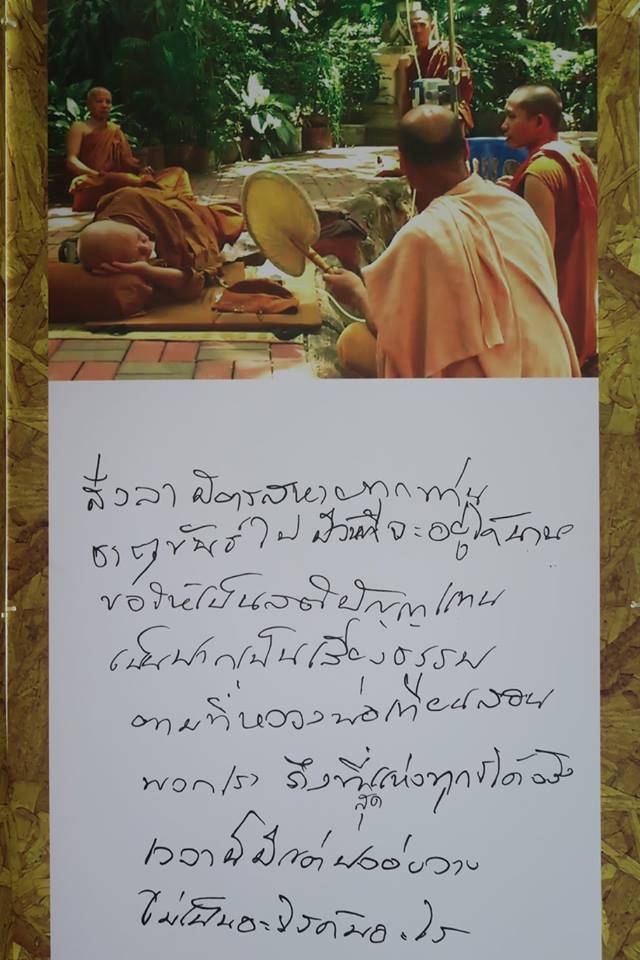 สั่งลา มิตรสหายทุกท่าน
ธาตุขันธ์ไป มีวันที่จะอยู่ได้นาน
ขอให้เป็นสติปัญญาแทน
เป็นปากเป็นเสียงธรรม
ตามที่หลวงพ่อเทียนสอน
พวกเรา ถึงที่สุดแห่งทุกข์ได้จริง
เวลานี้มีแต่ปล่อยวาง
ไม่เป็นอะไรกับอะไร